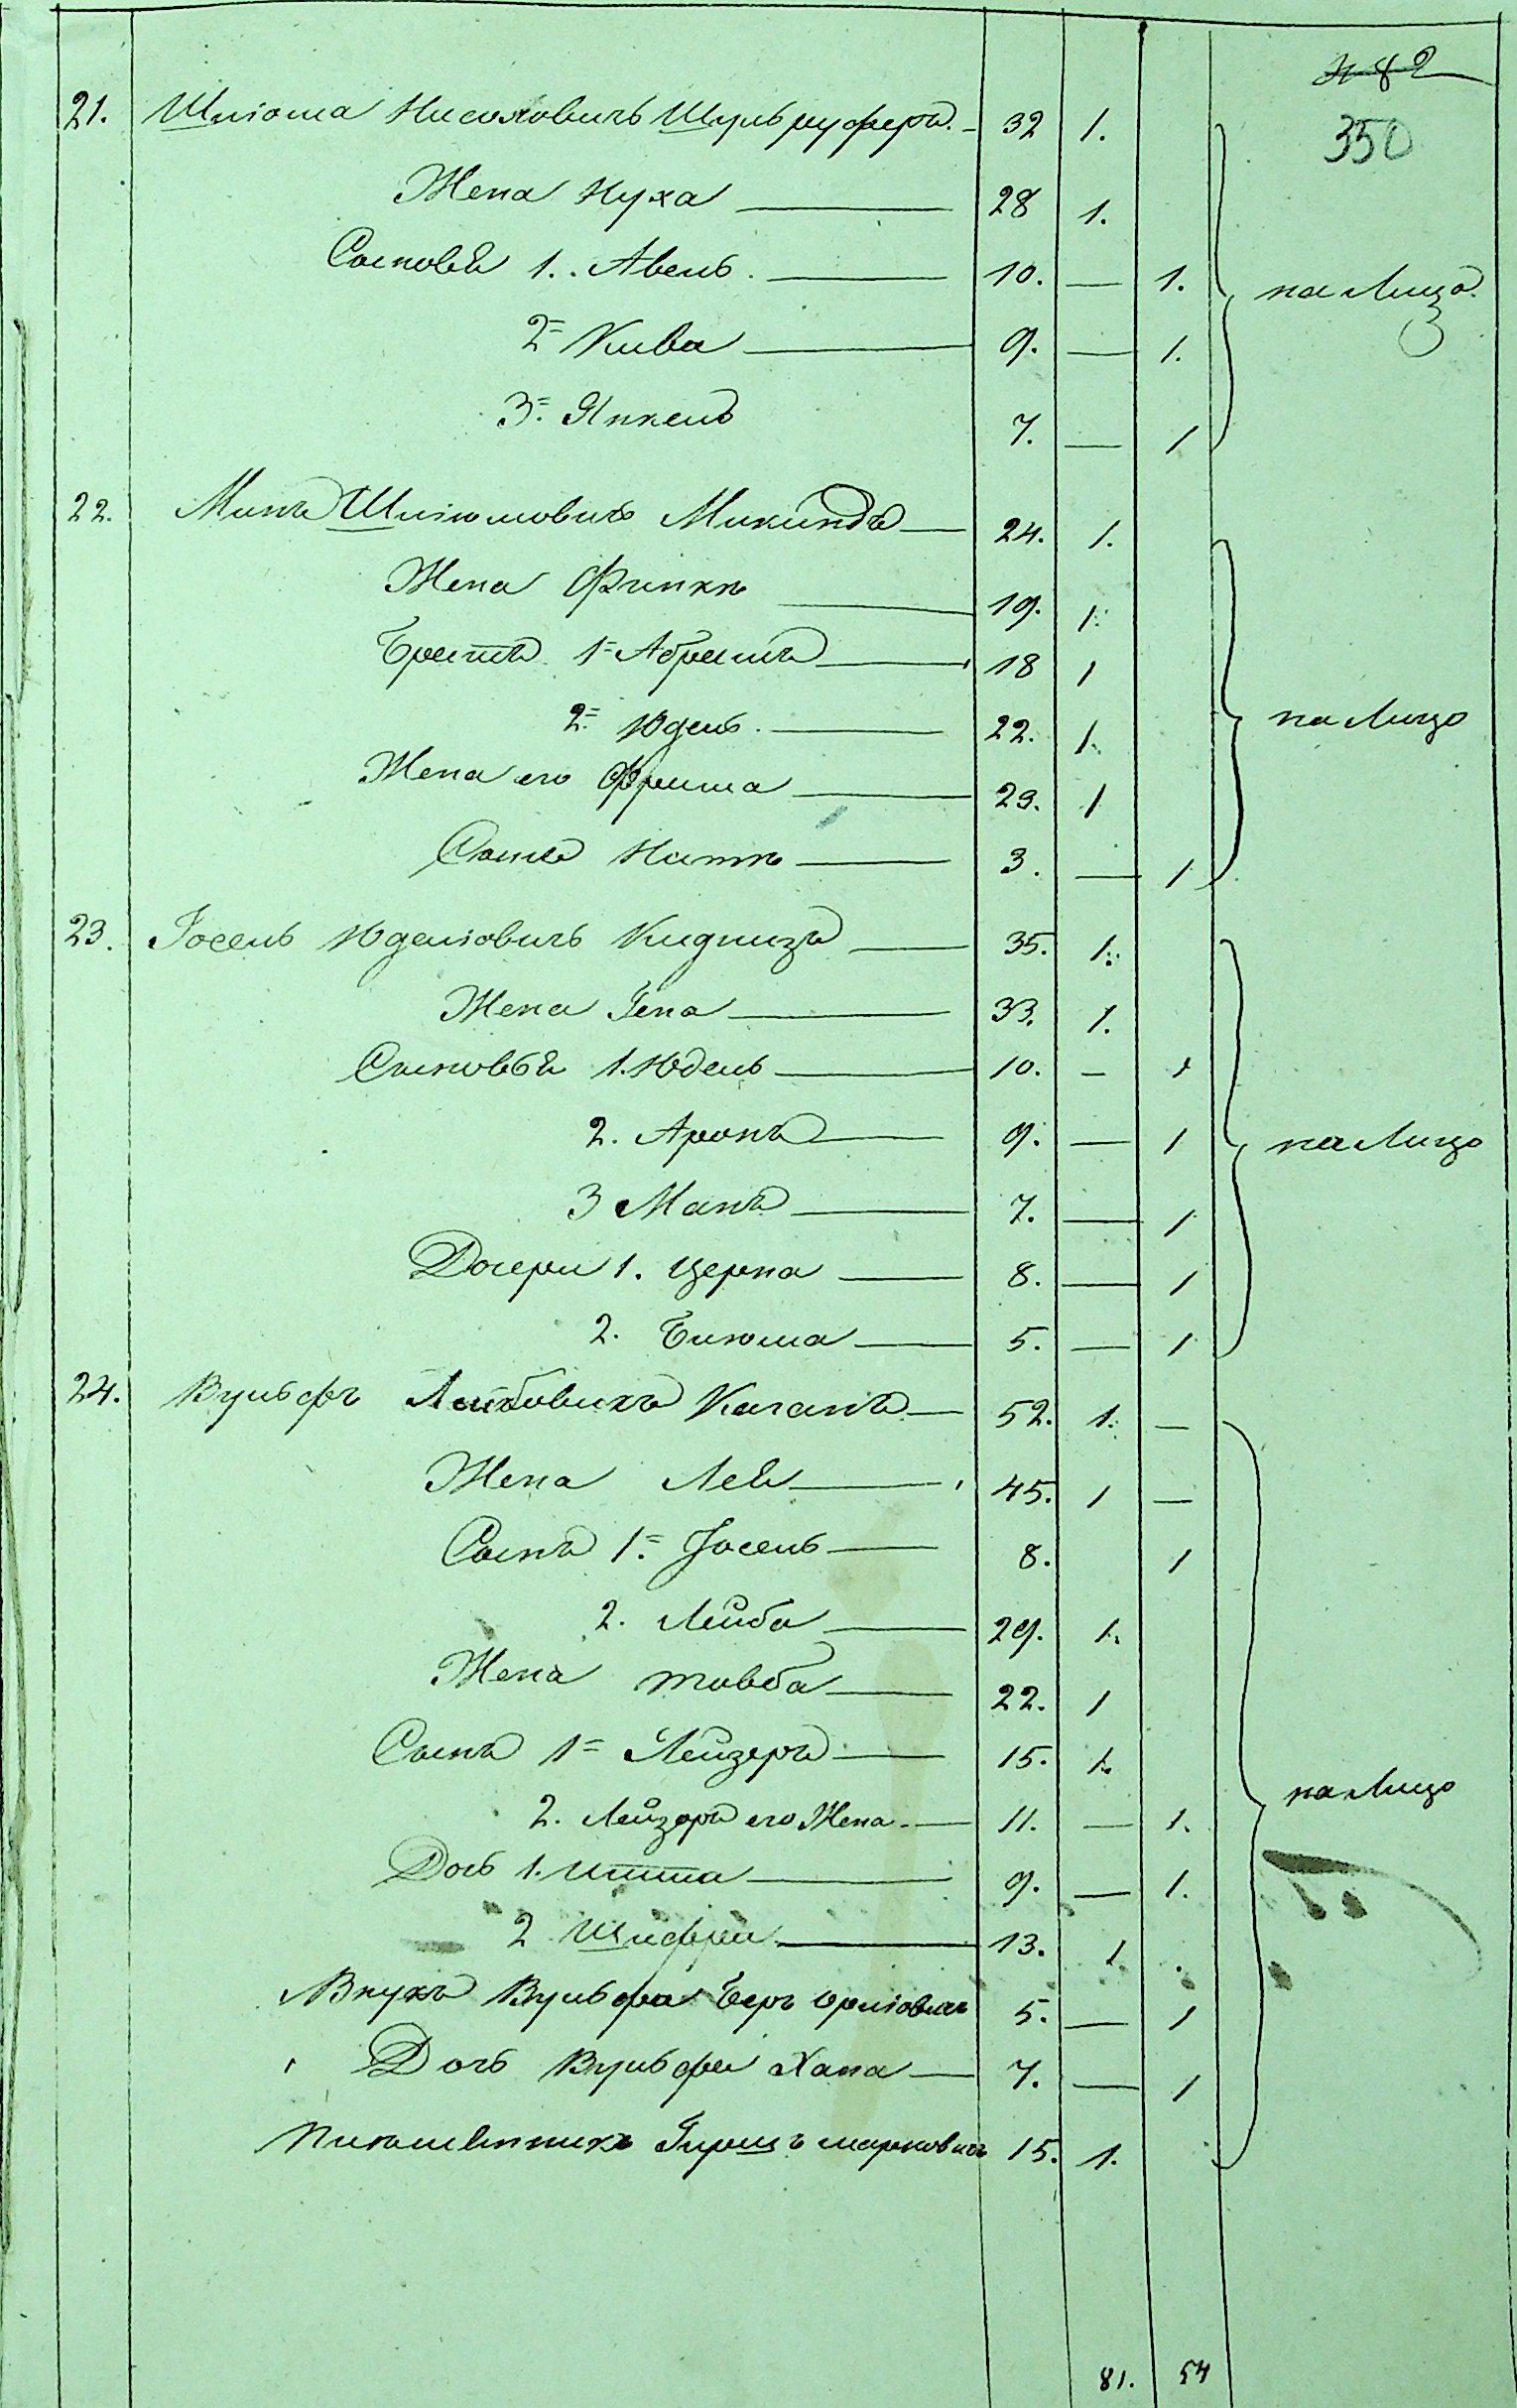 482
350
21. Шлiома Нисоновичь Шульруферъ. 32 1.
Жена Нуха 28 1.
Сыновья 1. Авель. 10. — 1. на Лицо.
2. Кива 9. — 1.
3. Янкель 7. — 1
22. Манъ Шліомовичь Микиндъ 24. 1.
Жена 19. 1.
Братъ 1 Абрамъ 18 1
2. Юдель. 22. 1. на Лицо
Жена его Фрима 29. 1
Сынъ 3. — 1
23. Іосель Юделіовичь 35. 1.
Жена Гена 33. 1.
Сыновья 1. Юдель 10. — 1
2. Аронъ 9. — 1 на Лицо
3 Манъ 7. — 1
Дочери 1. Церна 8. — 1
2. Блюма 5. — 1
24. Вульфъ Лейбовичъ Каганъ 52. 1. —
Жена Лея 45. 1 —
Сынъ 1. Іосель 8. 1
2. Лейба 29. 1.
Жена Товба 22. 1
Сынъ 1 Лейзеръ 15. 1.
2. Лейзора его Жена 11. — 1. на Лицо
Дочь 1. Итта 9. — 1.
2 Шифра 13. 1.
Внукъ Вульфа Беръ 5. — 1
Дочь Вульфа Хана 7. — 1
Гиршъ марковичъ 15. 1.
81. 54